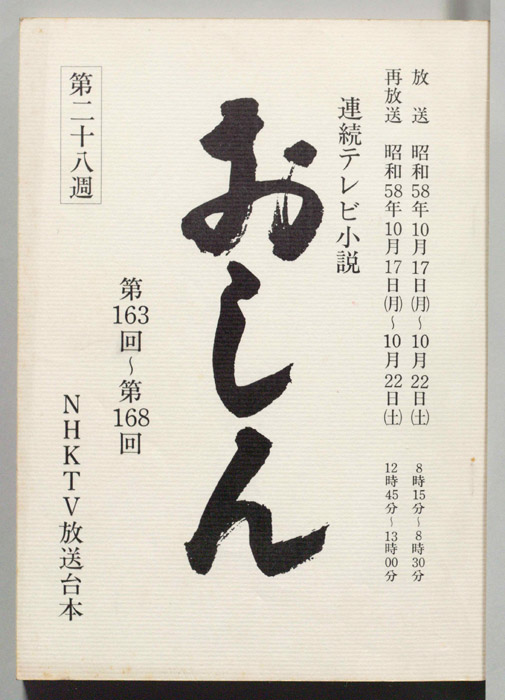 放送 昭和58年10月17日(月)～10月22日(土) 8時15分～8時30分
再放送 昭和58年10月17日(月)～10月22日(土) 12時45分～13時00分
連続テレビ小説
おしん
第163回～第168回
第二十八週
NHKTV放送台本